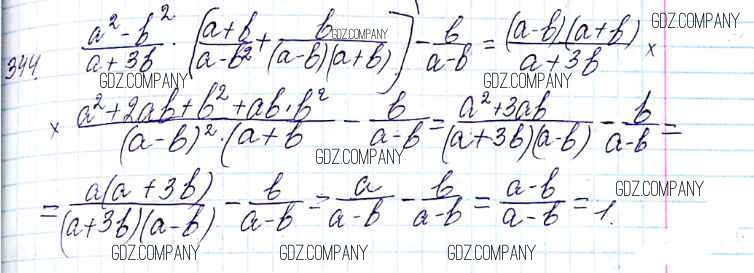 344. (a² - b²)/(a + 3b) · [(a + b)/(a - b²) + b/((a - b)(a + b))] - b/(a - b) = ((a - b)(a + b))/(a + 3b) ×
× (a² + 2ab + b² + ab · b²)/((a - b)² · (a + b) - b/(a - b) = (a² + 3ab)/((a + 3b)(a - b)) - b/(a - b) =
= (a(a + 3b))/((a + 3b)(a - b)) - b/(a - b) = a/(a - b) - b/(a - b) = (a - b)/(a - b) = 1.
GDZ.COMPANY
GDZ.COMPANY
GDZ.COMPANY
GDZ.COMPANY
GDZ.COMPANY
GDZ.COMPANY
GDZ.COMPANY
GDZ.COMPANY
GDZ.COMPANY
GDZ.COMPANY